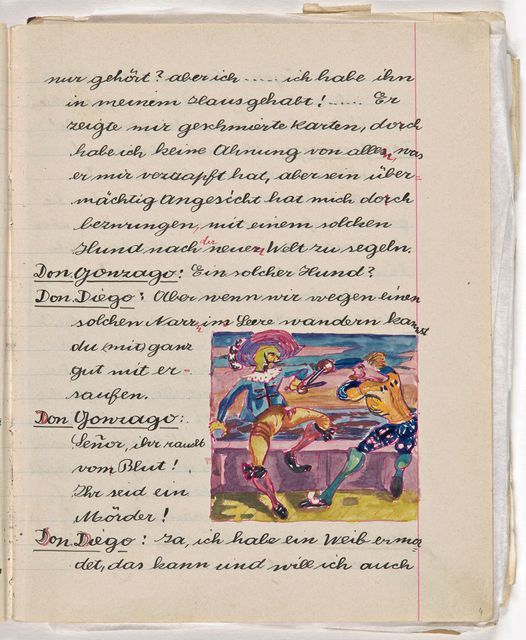 nur gehört? aber ich ...... ich habe ihn
in meinem Haus gehabt! ...... Er
zeigte mir geschmierte Karten, doch
habe ich keine Ahnung von allen, was
er mir verzapft hat, aber sein über-
mächtig Angesicht hat mich doch
bezwungen, mit einem solchen
Hund nach der neuen Welt zu segeln.
Don Gonzago: Ein solcher Hund?
Don Diego: Aber wenn wir wegen einen
solchen Narrn im Leere wandern kannst
du mir ganz
gut mit er-
saufen.
Don Gonzago:
Señor, ihr raucht
vom Blut!
Ihr seid ein
Mörder!
Don Diego: Ja, ich habe ein Weib ermor
det, das kann und will ich auch